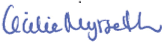 Cecilie Myrseth